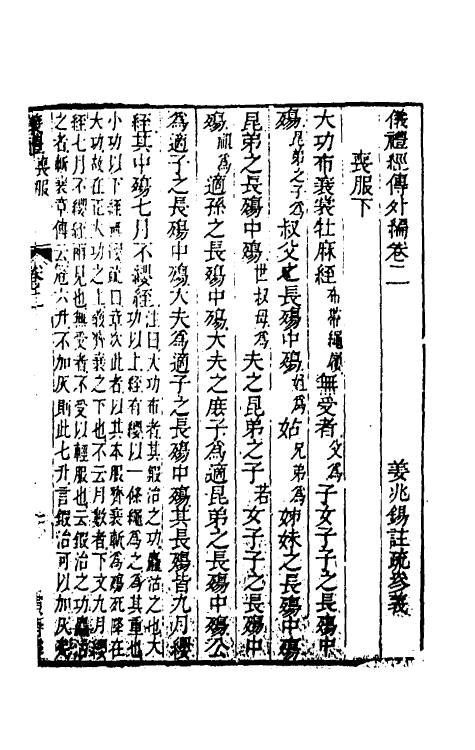 儀禮經傳外編卷二
姜兆錫註疏參義
喪服下
大功布衰裳牡麻絰布帶繩纓無受者父為子女子子之長殤中
殤昆弟之子為叔父之長殤中殤姪為姑兄弟為姊妹之長殤中殤
昆弟之長殤中殤世叔母為夫之昆弟之子若女子子之長殤中
殤祖為適孫之長殤中殤大夫之庶子為適昆弟之長殤中殤公
為適子之長殤中殤大夫為適子之長殤中殤其長殤皆九月纓
絰其中殤七月不纓絰註曰大功布者其鍛治之功麤治之也大
功以上絰有纓以一條繩為之為其重也
小功以下絰無纓疏曰章次此者以其本服齊衰斬為殤死降在
大功故在正大功之上義齊衰之下也不云月數者下文九月纓
絰七月不纓絰兩見也無受者不受以輕服也云鍛治之功麤治
之者斬衰章傳云冠六升不加灰則此七升言鍛治可以加灰矣
喪服
卷二